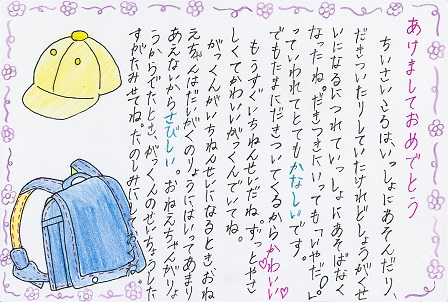 あけましておめでとう
ちいさいころは、いっしょにあそんだり、
だきついたりしていたけれどしょうがくせ
いになるにつれていっしょにあそばなく
なったね。だきつきにいっても「いやだ!」
っていわれてとてもかなしいです。
でもたまにだきついてくるからかわいい
もうすぐいちねんせいだね。ずっとやさ
しくてかわいいがっくんでいてね。
がっくんがいちねんせいになるとき、おね
えちゃんはだいがくのりょうにはいってあまり
あえないからさびしい。おねえちゃんがりょ
うからでたとき、がっくんのせいちょうした
すがたみせてね。たのしみにし